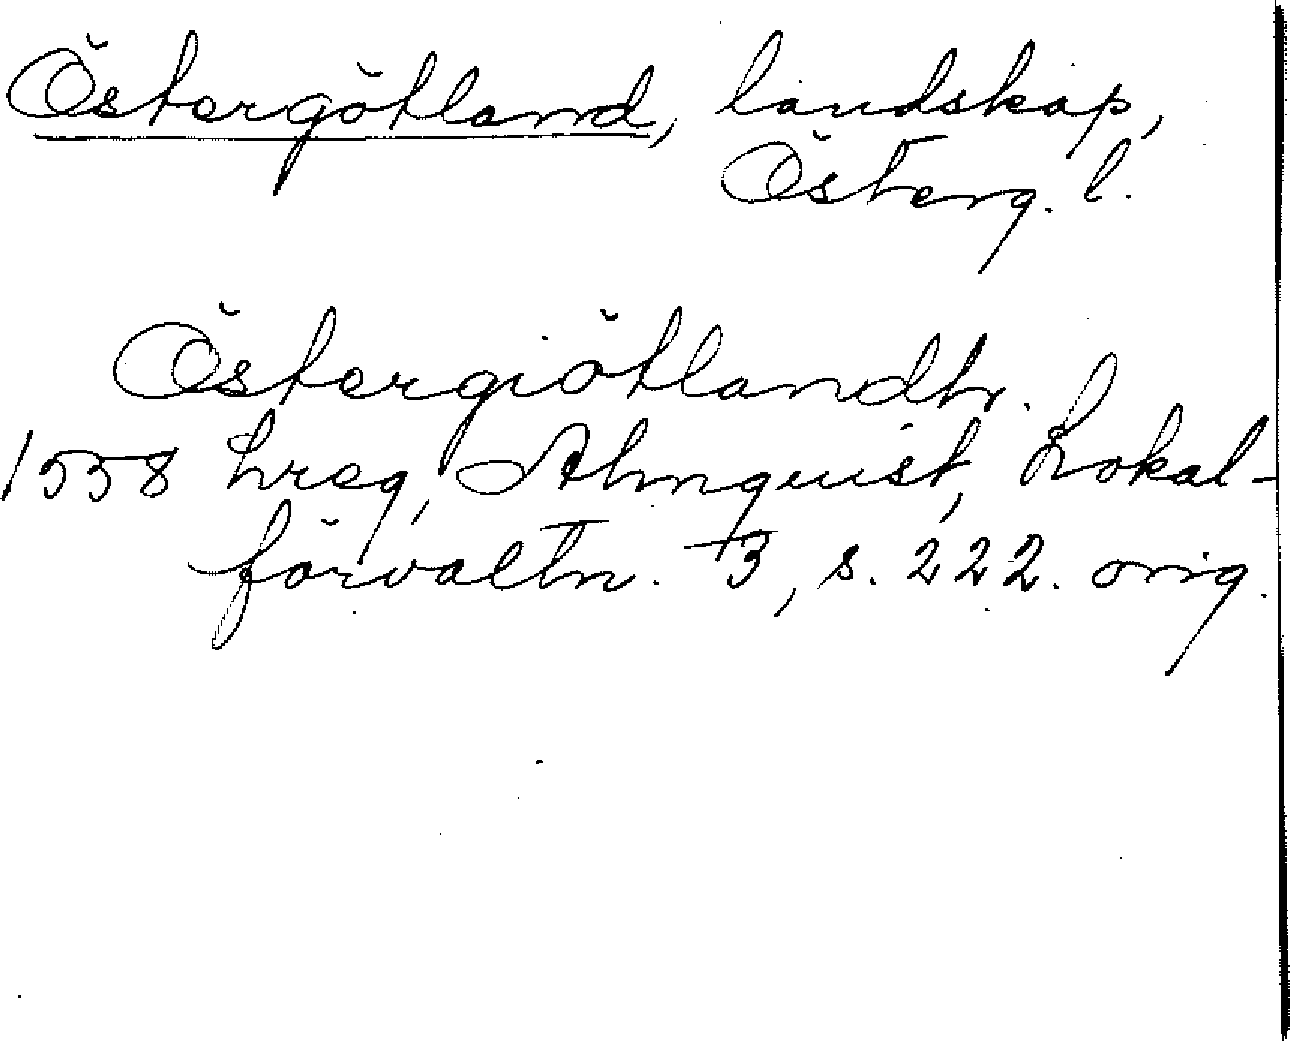 Östergötland, landskap,
Österg. l.
Östergiötlandh.
1558 hreg, Almquist, Lokal-
förvaltn. 3, s. 222. orig.